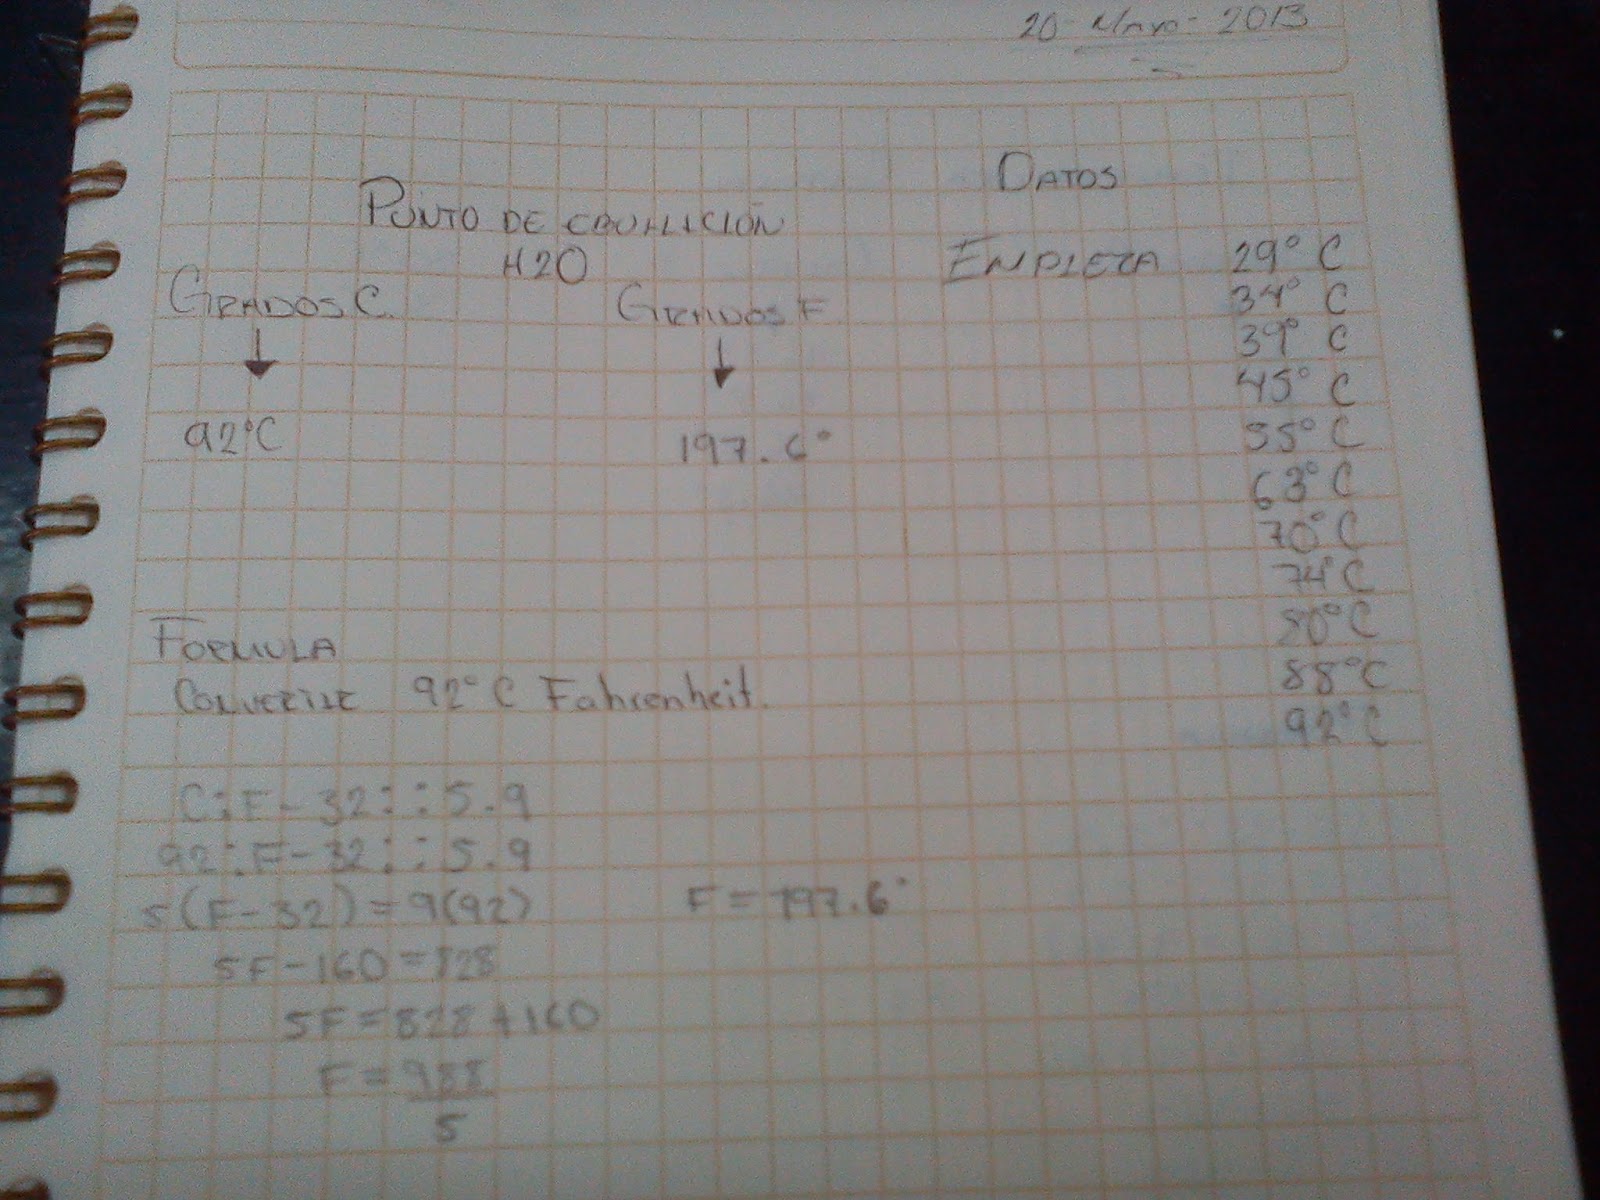 20-Mayo-2013
PUNTO DE EBULLICIÓN
H2O
GRADOS C.
GRADOS F
92°C
197.6°
DATOS
EMPIEZA 29° C
34° C
39° C
45° C
55° C
63° C
70° C
74° C
80° C
88° C
92° C
FORMULA
CONVERTIR 92° C Fahrenheit.
C:F-32::5.9
92:F-32::5.9
5(F-32)=9(92)
F=197.6°
5F-160=828
5F=828+160
F=988
5